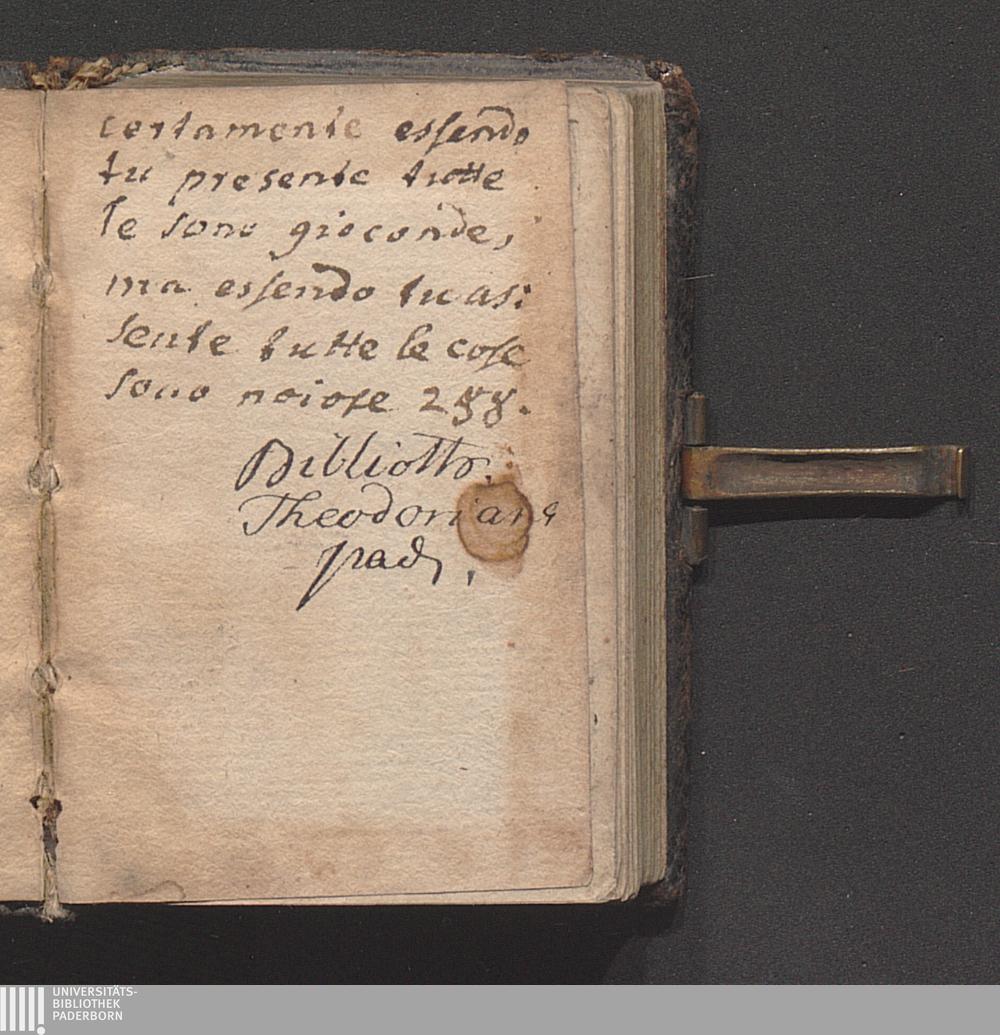 certamente essendo
tu presente tutte
le sono gioconde,
ma essendo tu as:
sente tutte le cose
sono noiose 288.
Biblioth.
Theodorianæ
pad,
UNIVERSITÄTS-
BIBLIOTHEK
PADERBORN